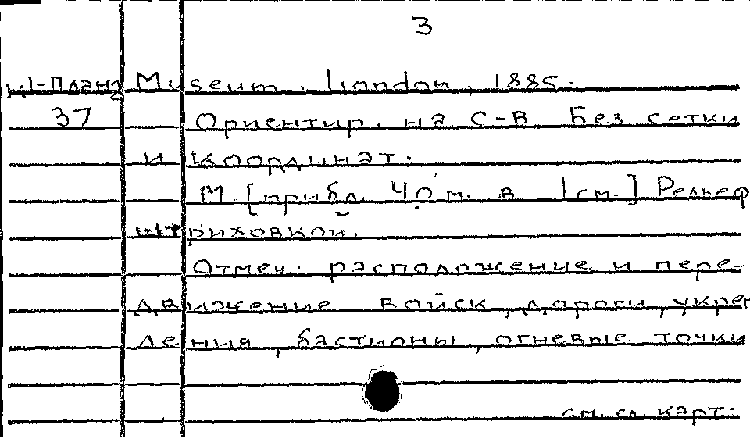 3
Ц1-План2 Museum. London, 1885.
37 Ориентир. на С-В. Без сетки
и координат.
М. [прибл. 40 м. в 1см.] Рельеф
штриховкой.
Отмеч. расположение и пере-
движение войск, дороги, укреп
ления, бастионы, огневые точки
см. сл. карт.